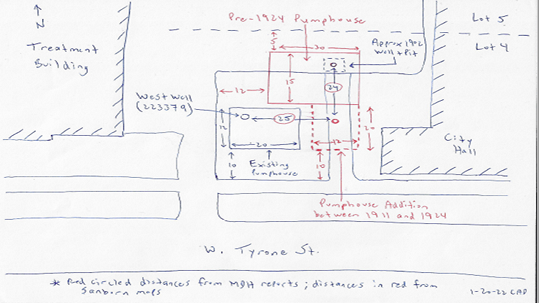 N
Pre-1924 Pumphouse
Lot 5
Lot 4
Treatment
Building
5
30
Approx 1902
Well + Pit
15
24
12
West Well
(223379)
25
12
12
20
12
10
Existing
Pumphouse
10
City
Hall
Pumphouse Addition
between 1911 and 1924
W. Tyrone St.
* Red circled distances from MDH reports; distances in red from
Sanborn maps
1-20-22 CAP